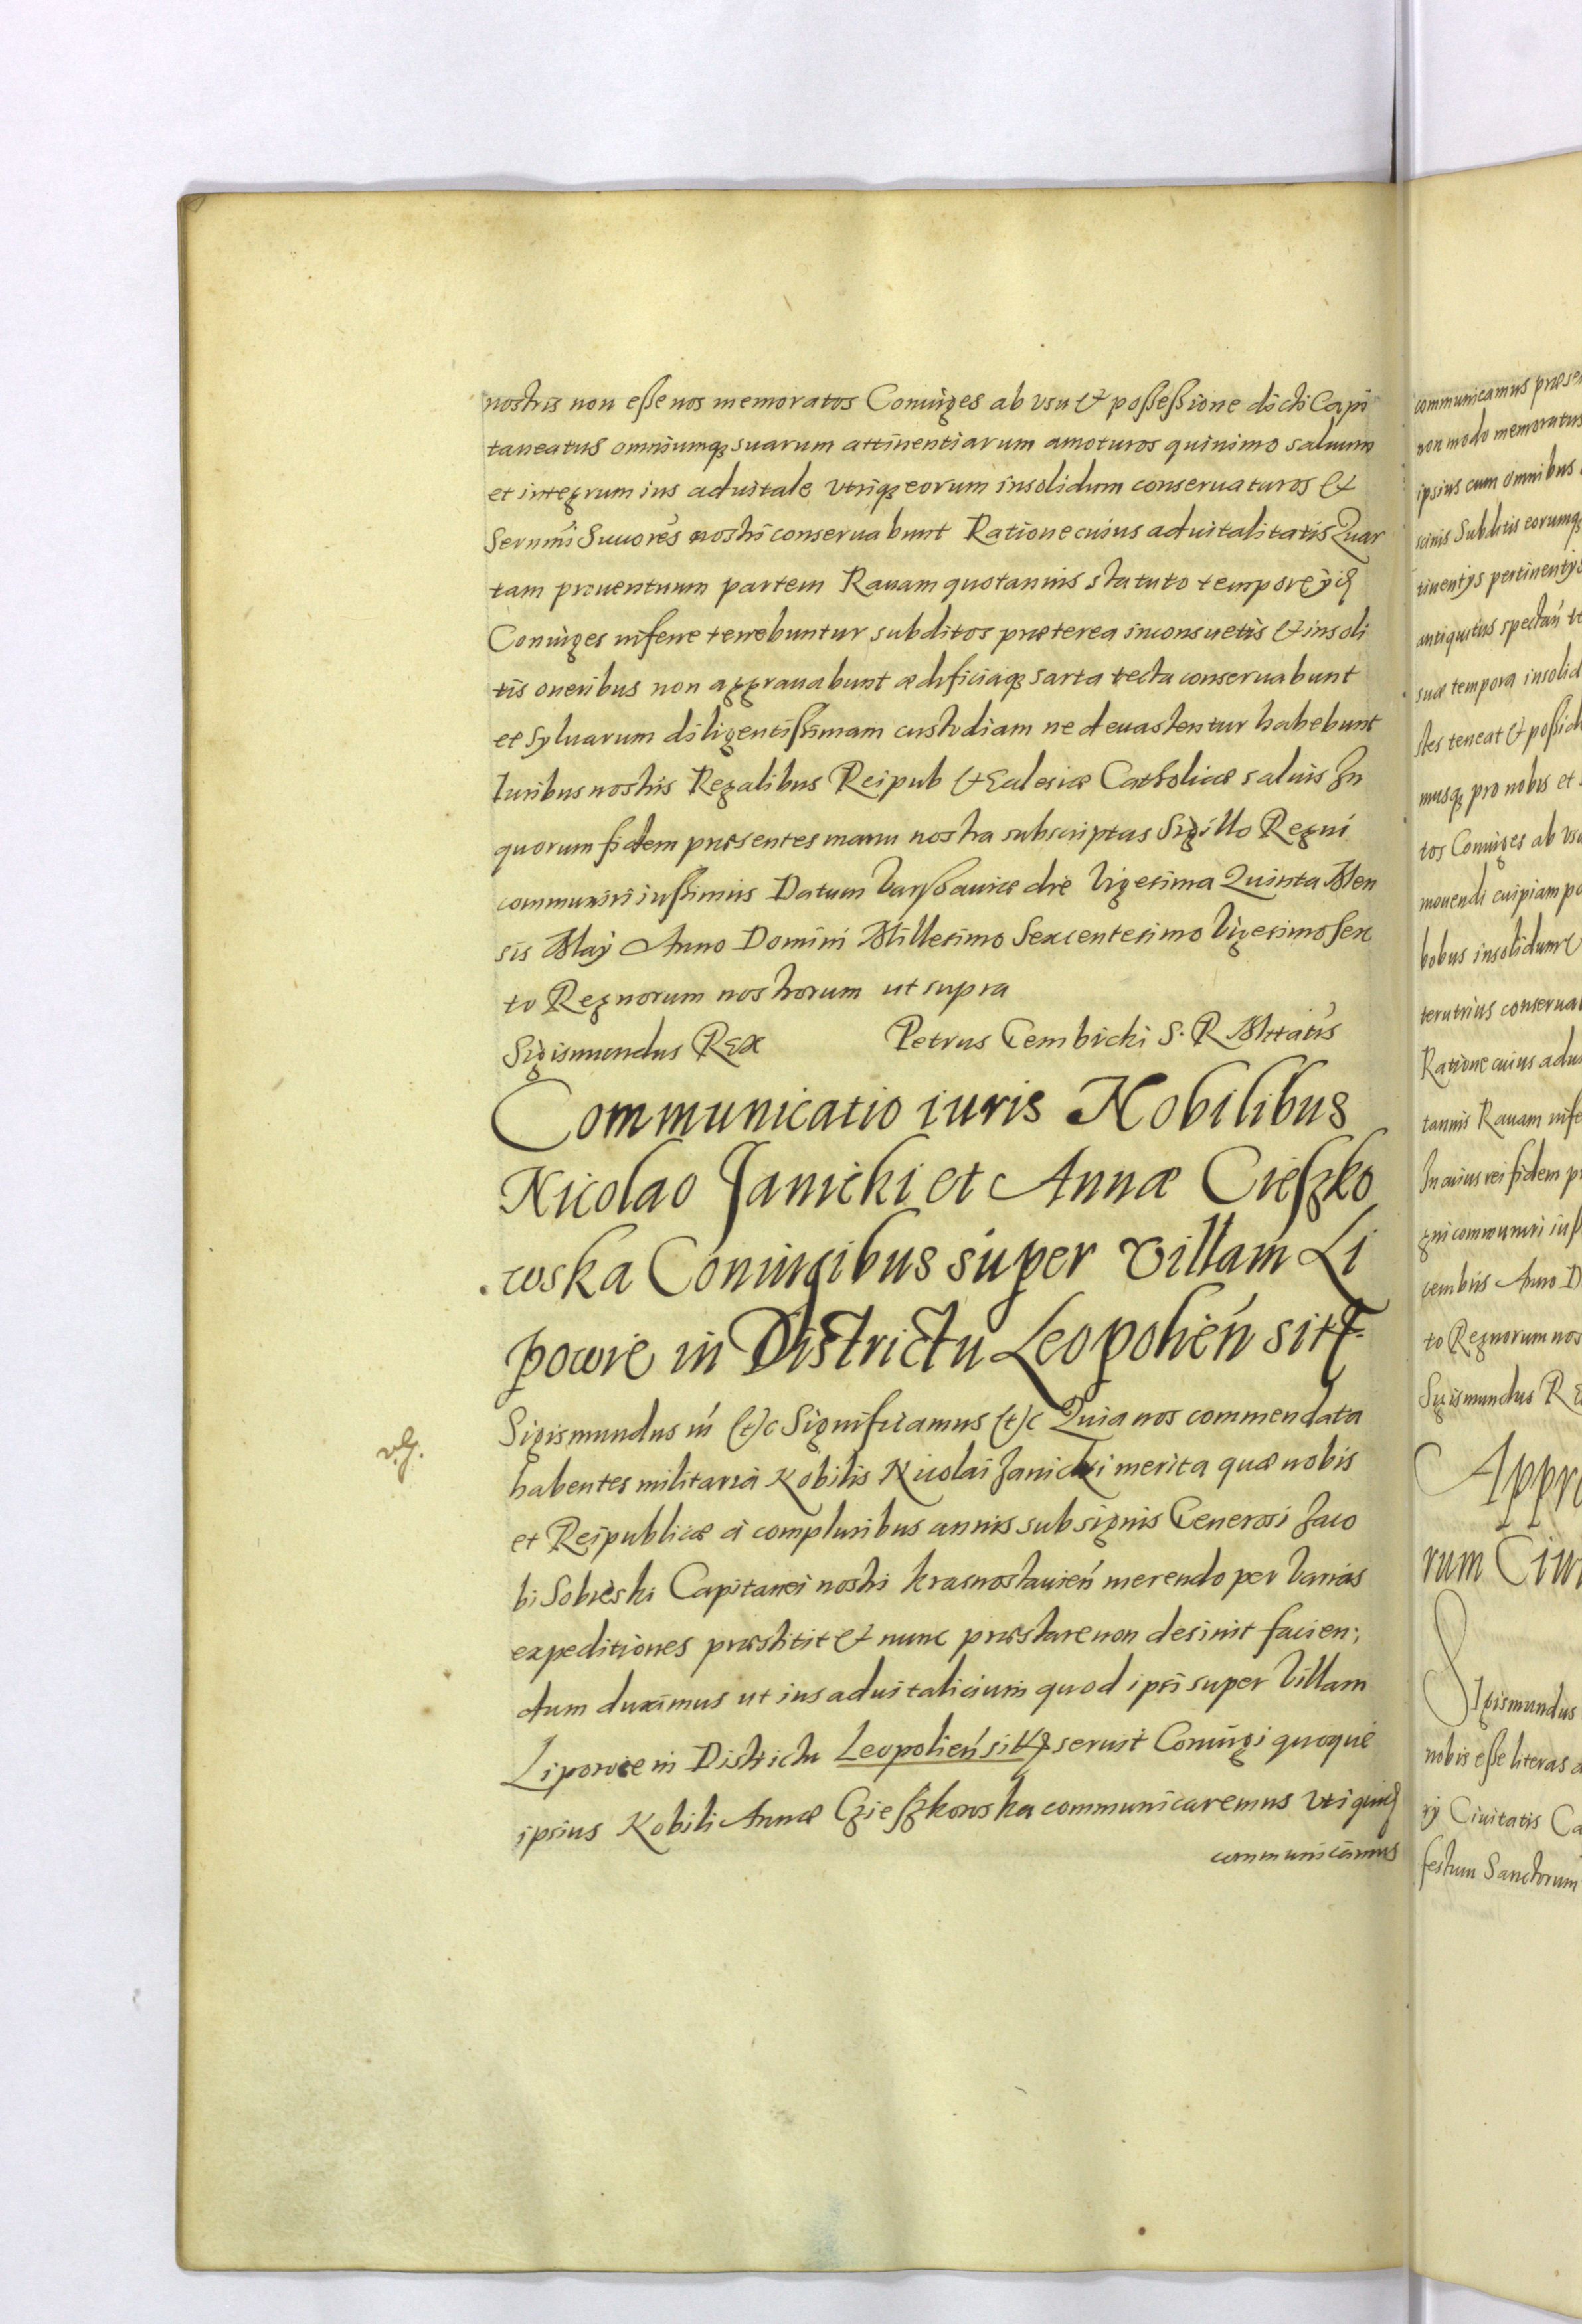 nostris non eße nos memoratos Coniuges ab vsu et poßeßione dicti Capi
taneatus omniumq; suarum attinentiarum amoturos quinimo saluum
et integrum ius aduitale vtriq; eorum insolidum conseruaturos et
Sernmi Succores nostri conseruabunt Ratione cuius aduitalitatis Quar
tam prouentuum partem Rauam quotannis statuto tempore ijdẽ
Coniuges inferre tenebuntur subditos præterea inconsuetis et insoli
tis oneribus non aggrauabunt ædificiaq; sarta tecta conseruabunt
et syluarum diligentißimam custodiam ne deuastentur habebunt
Iuribus nostris Regalibus Reipub et Eclesiæ Catholicæ saluis In
quorum fidem præsentes manu nostra subscriptas Sigillo Regni
communiri iußimus Datum Varsouiæ die Vigesima Quinta Men
sis Maij Anno Domini Millesimo Sexcentesimo Vigesimo sex
to Regnorum nostrorum ut supra
Sigismundus REX Petrus Gembicki S. R. Mttatis
Communicatio iuris Nobilibus
Nicolao Janicki et Annæ Cießzko
wska Coniugibus super villam Li
powie in Districtu Leopolień sitt
Sigismundus iii etc Significamus etc Quia nos commendata
v.g.
habentes militaria Nobilis Nicolai Janicki merita quæ nobis
et Reipublicæ à compluribus annis sub signis Generosi Jaco
bi Sobieski Capitanei nostri Krasnostauień merendo per Varias
expeditiones præstitit et nunc præstare non desinit facien:
dum duximus ut ius aduitalicium quod ipsi super Villam
Lipowce in Districtu Leopolień sittą seruit Coniugi quoque
ipsius Nobili Annæ Czießzkowska communicaremus vti quidẽ
communicamus
communicamus præse
non modo memoratus
ipsius cum omnibus
scinis Subditis eorumq;
tinentijs pertinentijs
antiquitus spectań te
suæ tempora insolid
stes teneat et poßid
musq; pro nobis et
tos Coniuges ab vsu
mouendi cuipiam po
bobus insolidum e
terutrius conserua
Ratione cuius adui
tannis Rauam infe
In cuius rei fidem p
gni communiri iuß
cembris Anno D
to Regnorum nos
Sigismundus RE
Appro
rum Ciui
Sigismundus
nobis eße literas
rij Ciuitatis Ca
festum Sanctorum